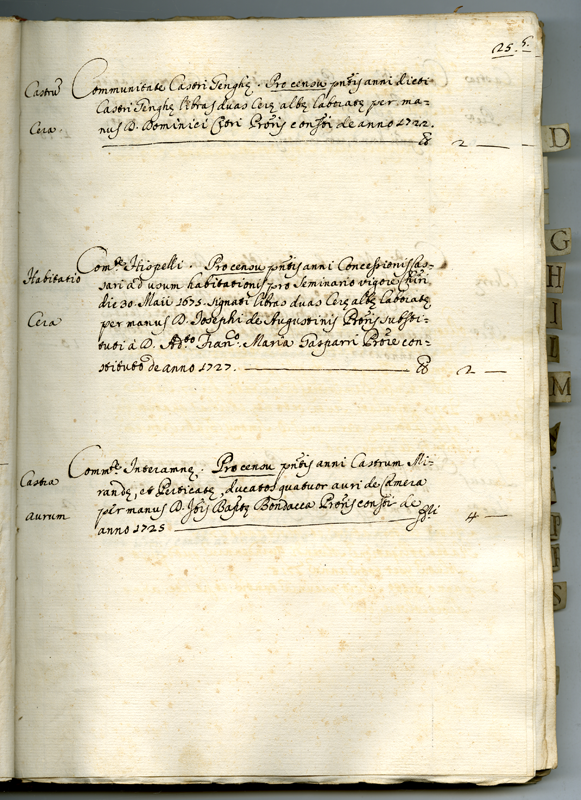 25. 5.
Castrũ Communitate Castri Genghę. Pro censu pñtis anni dicti
Castri Genghę libras duas Cerę albę laboratę per ma-
Cera nus D. Dominici Proris constⁱ de anno 1722.
2 —
Habitatio Comᵗᵉ Hispelli. Pro censu pñtis anni Concessionis
sari ad usum habitationis pro Seminario vigore
die 30. Maii 1675. signati libras duas Cerę albę laboratę
Cera per manus D. Josephi de Augustinis Proris substi-
tuti à D. Franᶜᵒ Maria Gasparri Prore con-
stituto de anno 1727. 2 —
Castra Commᵗᵉ Interamnę. Pro censu pñtis anni Castrum Mi-
randę, et Perticatę, ducatos quatuor auri de Camera
aurum per manus D. Jõis Baptę Bondacca Proris constⁱ de
anno 1725 4 —
D
G
H
I
L
M
P
I
S